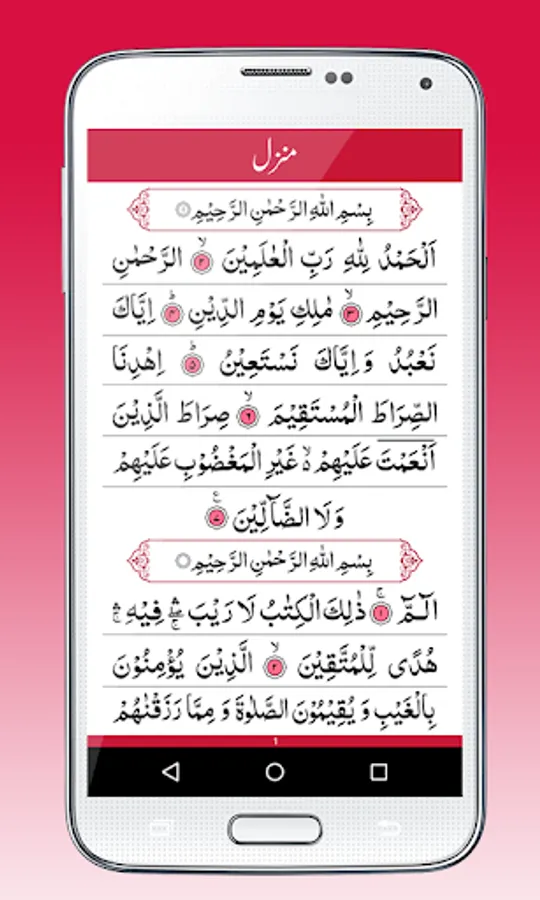 منزل
بِسْمِ اللهِ الرَّحْمٰنِ الرَّحِيْمِ ۝۱
اَلْحَمْدُ لِلّٰهِ رَبِّ الْعٰلَمِيْنَ ۙ۝۲ الرَّحْمٰنِ
الرَّحِيْمِ ۙ۝۳ مٰلِكِ يَوْمِ الدِّيْنِ ؕ۝۴ اِيَّاكَ
نَعْبُدُ وَاِيَّاكَ نَسْتَعِيْنُ ؕ۝۵ اِهْدِنَا
الصِّرَاطَ الْمُسْتَقِيْمَ ۙ۝۶ صِرَاطَ الَّذِيْنَ
اَنْعَمْتَ عَلَيْهِمْ ۙ۬ غَيْرِ الْمَغْضُوْبِ عَلَيْهِمْ
وَلَا الضَّآلِّيْنَ ۠۝۷
بِسْمِ اللهِ الرَّحْمٰنِ الرَّحِيْمِ
الٓمّٓ ۚ۝۱ ذٰلِكَ الْكِتٰبُ لَا رَيْبَ ۛۖ فِيْهِ ۛ
هُدًى لِّلْمُتَّقِيْنَ ۙ۝۲ الَّذِيْنَ يُؤْمِنُوْنَ
بِالْغَيْبِ وَ يُقِيْمُوْنَ الصَّلٰوةَ وَ مِمَّا رَزَقْنٰهُمْ
1